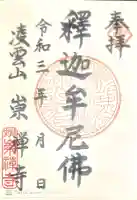 奉拝
釋迦牟尼佛
令和三年 月 日
凌雲山 崇禅寺